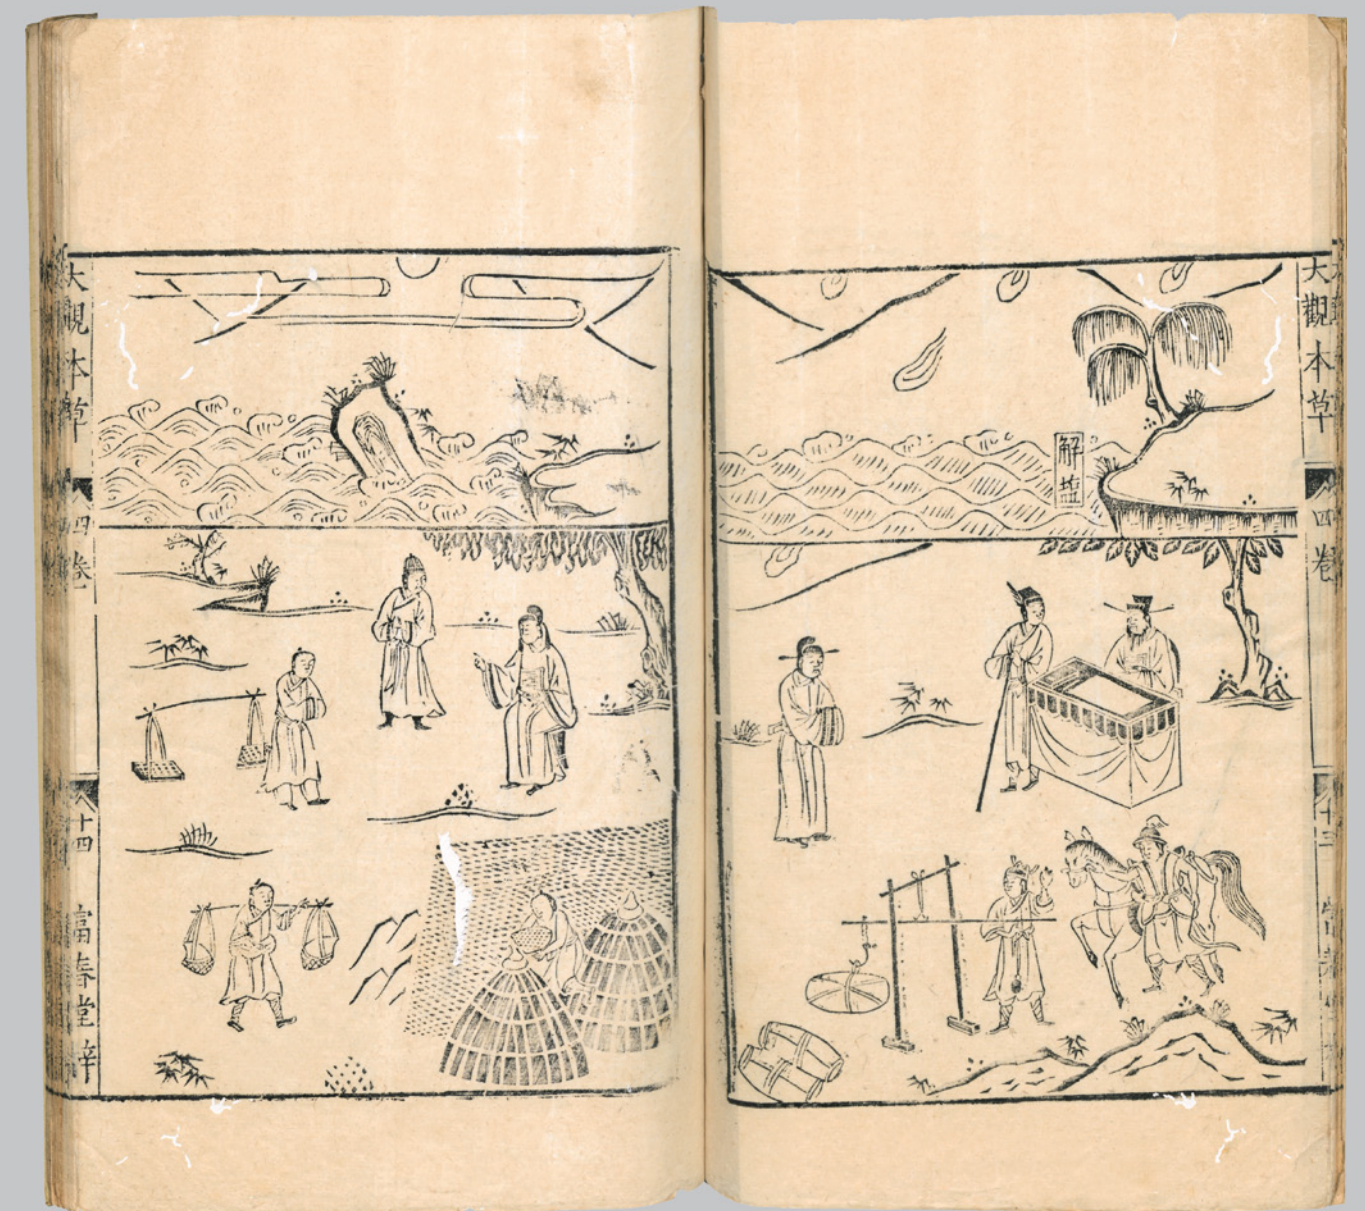 大觀本草
四卷
解盐
大觀本草
四卷
八十四
富春堂梓